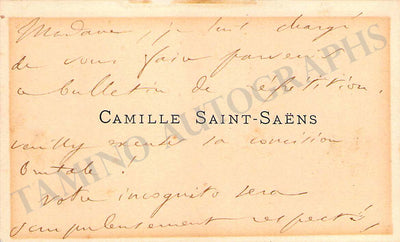 Madame, je suis chargé
de vous faire parvenir
ce bulletin de répétition.
CAMILLE SAINT-SAËNS
veuillez excuser la concision
brutale !
Votre incognito sera
scrupuleusement respecté,
TAMINO AUTOGRAPHS